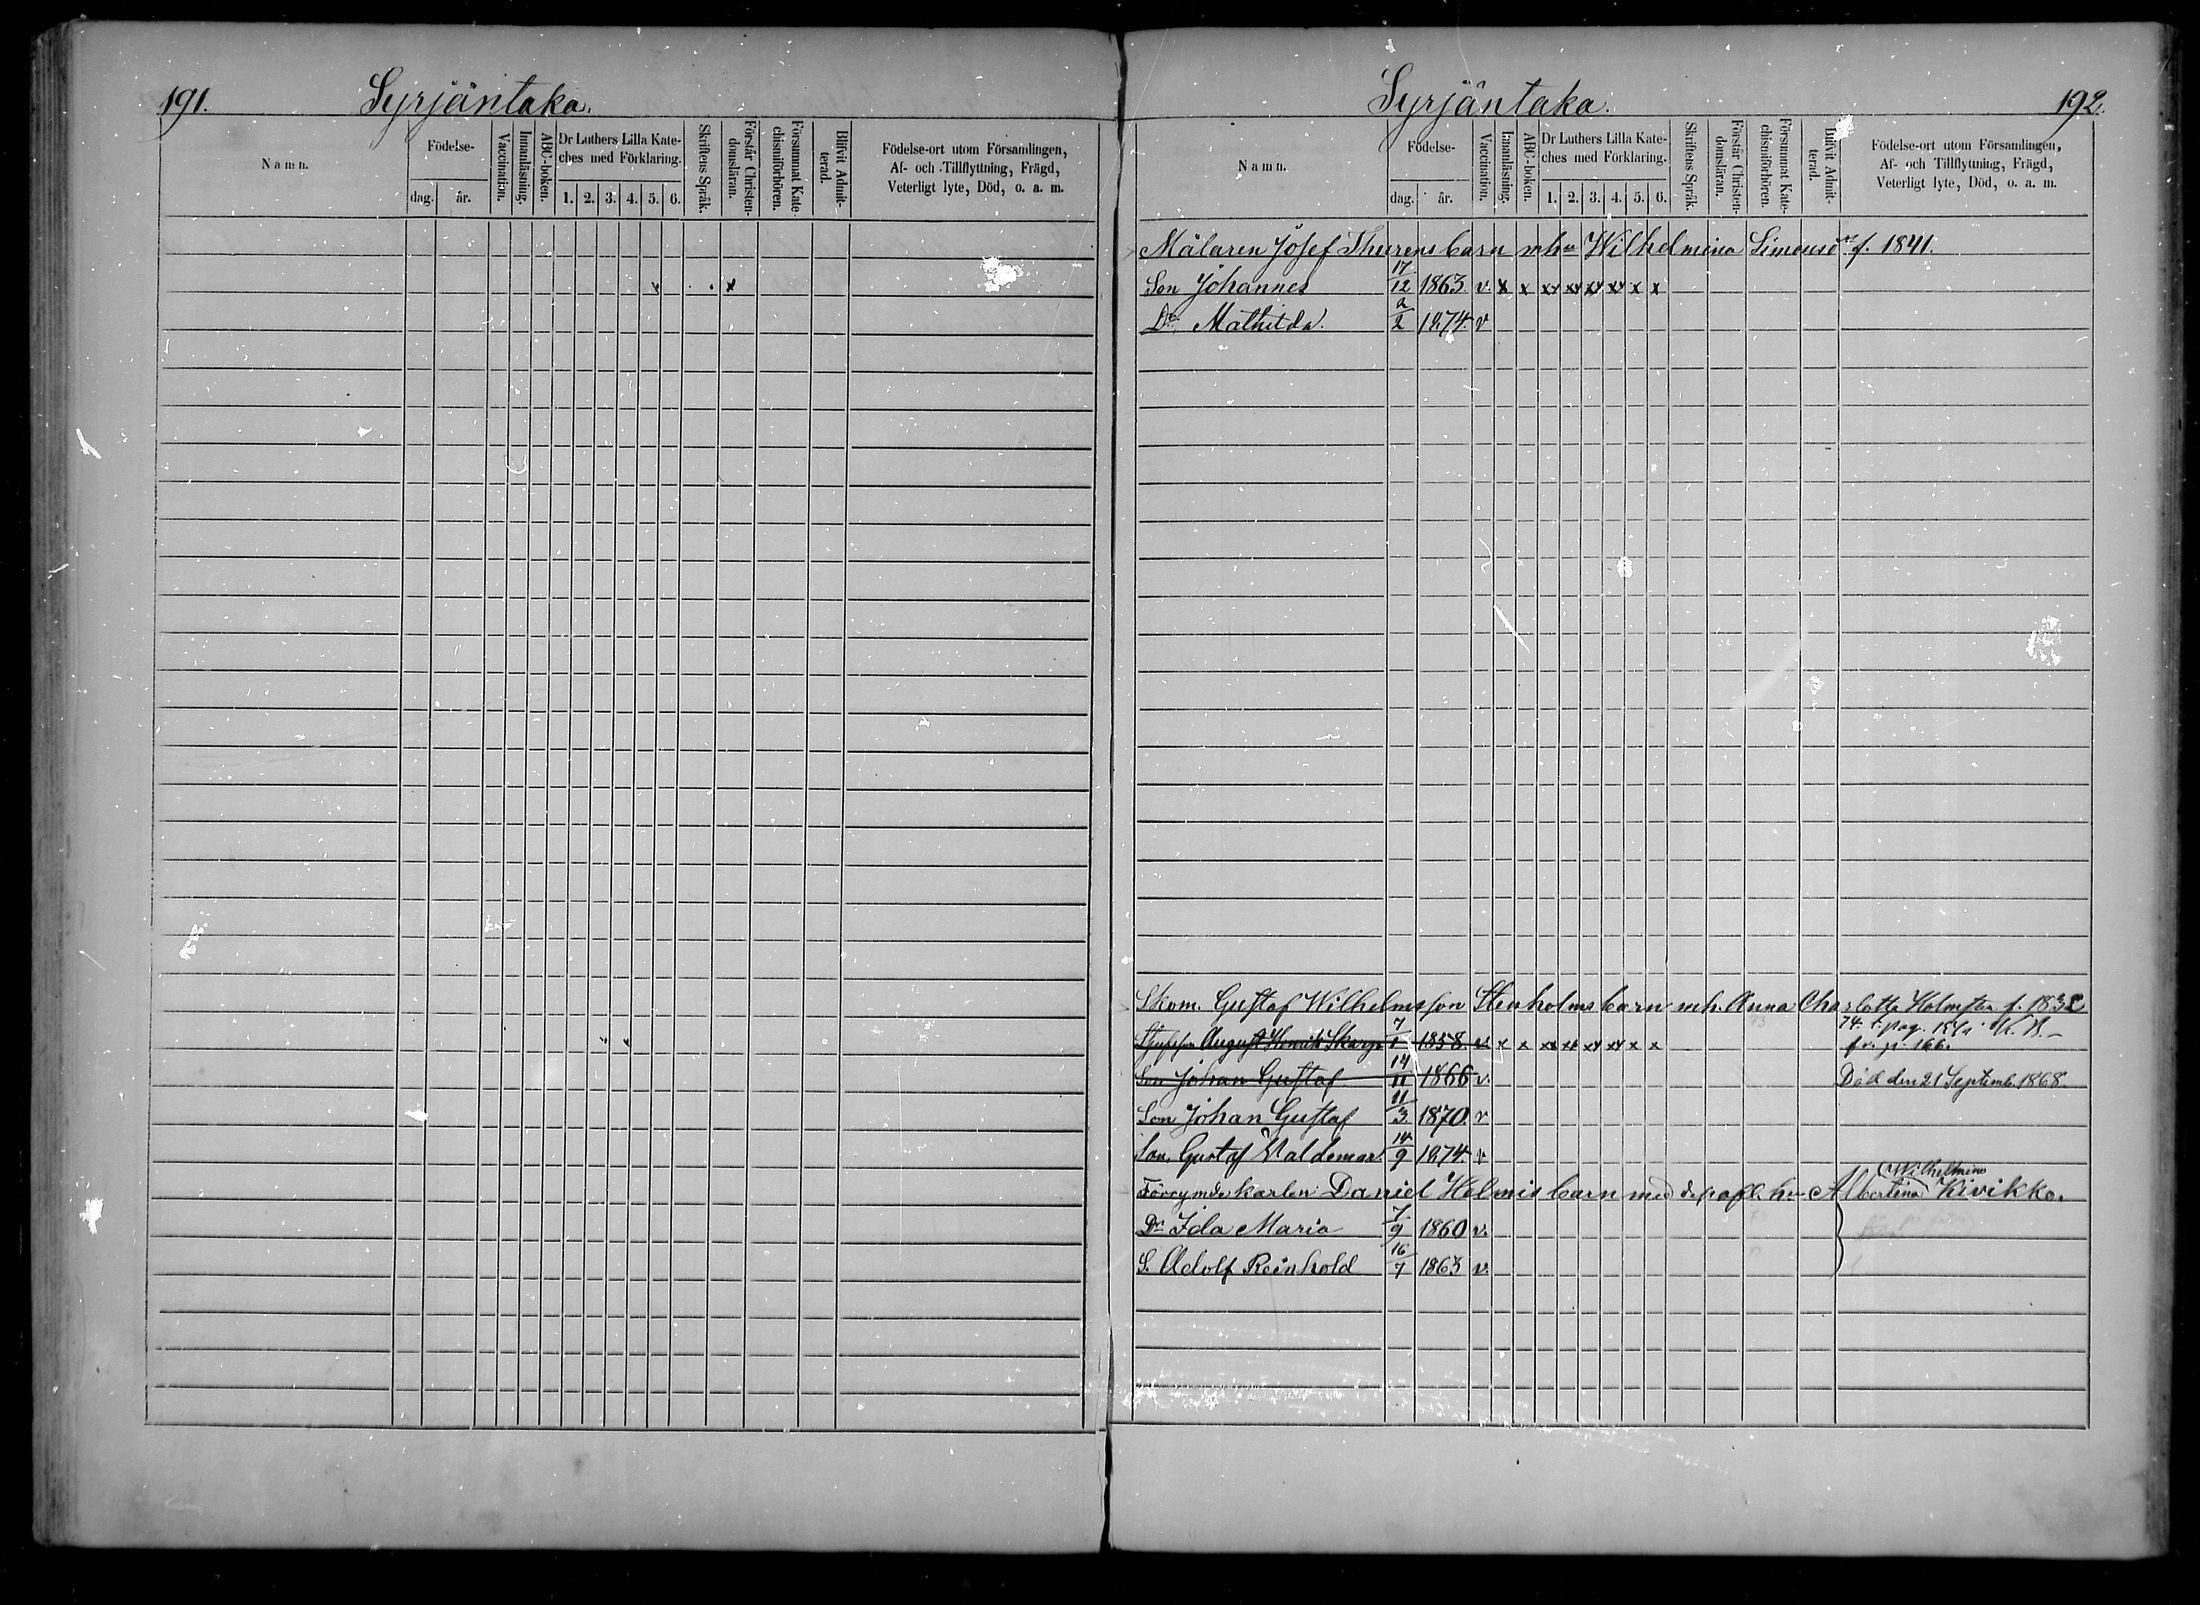 191. Syrjäntaka.
Namn.
Födelse-
dag. år.
Vaccination.
Innanläsning.
ABC-boken.
Dr Luthers Lilla Kate-
ches med Förklaring.
1. 2. 3. 4. 5. 6.
Skriftens Språk.
Förstår Christen-
domsläran.
Försummat Kate-
chismiförhören.
Blifvit Admit-
terad.
Födelse-ort utom Församlingen,
Af- och Tillflyttning, Frägd,
Veterligt lyte, Död, o. a. m.
x . x
Syrjäntaka. 192.
Namn.
Födelse-
dag. år.
Vaccination.
Innanläsning.
ABC-boken.
Dr Luthers Lilla Kate-
ches med Förklaring.
1. 2. 3. 4. 5. 6.
Skriftens Språk.
Förstår Christen-
domsläran.
Försummat Kate-
chismiförhören.
Blifvit Admit-
terad.
Födelse-ort utom Församlingen,
Af- och Tillflyttning, Frägd,
Veterligt lyte, Död, o. a. m.
Målaren Josef Thurens barn mhu Wilhelmina Simonsdr f. 1841.
Son Johannes 17/12 1863. v. x x xx xx xx xx x x
Dr. Mathilda. 2/2 1874. v
Skom. Gustaf Wilhelmsson Stenholms barn mh. Anna Charlotta Holmsten f. 1832
August Henrik 7/1 1858. v. x x xx xx xx xx x x 74. t. pag.
fr. p. 166.
Son Johan Gustaf 14/11 1866 v. Död den 21 Septemb. 1868.
Son Johan Gustaf 11/3 1870. v
Son. Gustaf Valdemar 14/9 1874. v
Förrymde karlen Daniel Helmis barn med hu Albertina Wilhelmina Kivikko.
Dr Ida Maria 7/9 1860 v.
S. Adolf Reinhold 16/7 1863 v.